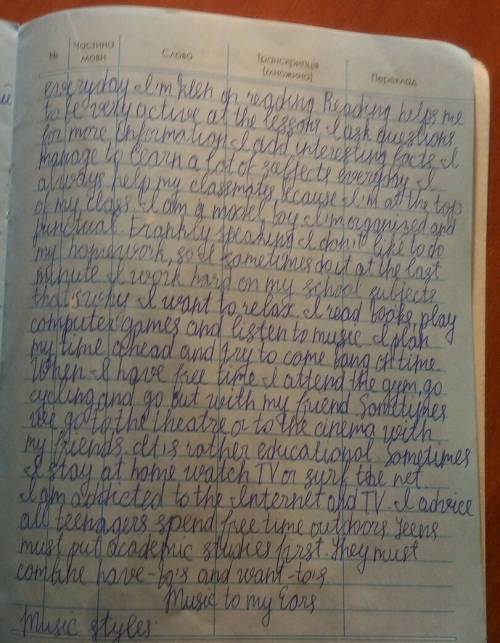 № Частина мови Слово Транскрипція (множина) Переклад
everyday I'm keen on reading. Reading helps me
to be very active at the lessons I ask questions
for more information I add interesting facts. I
manage to learn a lot of saffects everyday. I
always help my classmates, because I'm at the top
of my class. I am a model boy. I'm organized and
punctual. Frankly speaking I don't like to do
my homework, so I sometimes do it at the last
minute I work hard on my school subjects
that's why I want to relax. I read books, play
computer games and listen to music. I plan
my time ahead and try to come bang on time.
When I have free time I attend the gym, go
cycling and go out with my friend. Sometimes
we go to the theatre or to the cinema with
my friends. It is rather educational. Sometimes
I stay at home watch TV or surf the net.
I am addicted to the Internet and TV. I advice
all teenagers spend free time outdoors. Teens
must put academic studies first. They must
combine have-to's and want-to's
Music to my Ears
Music styles: